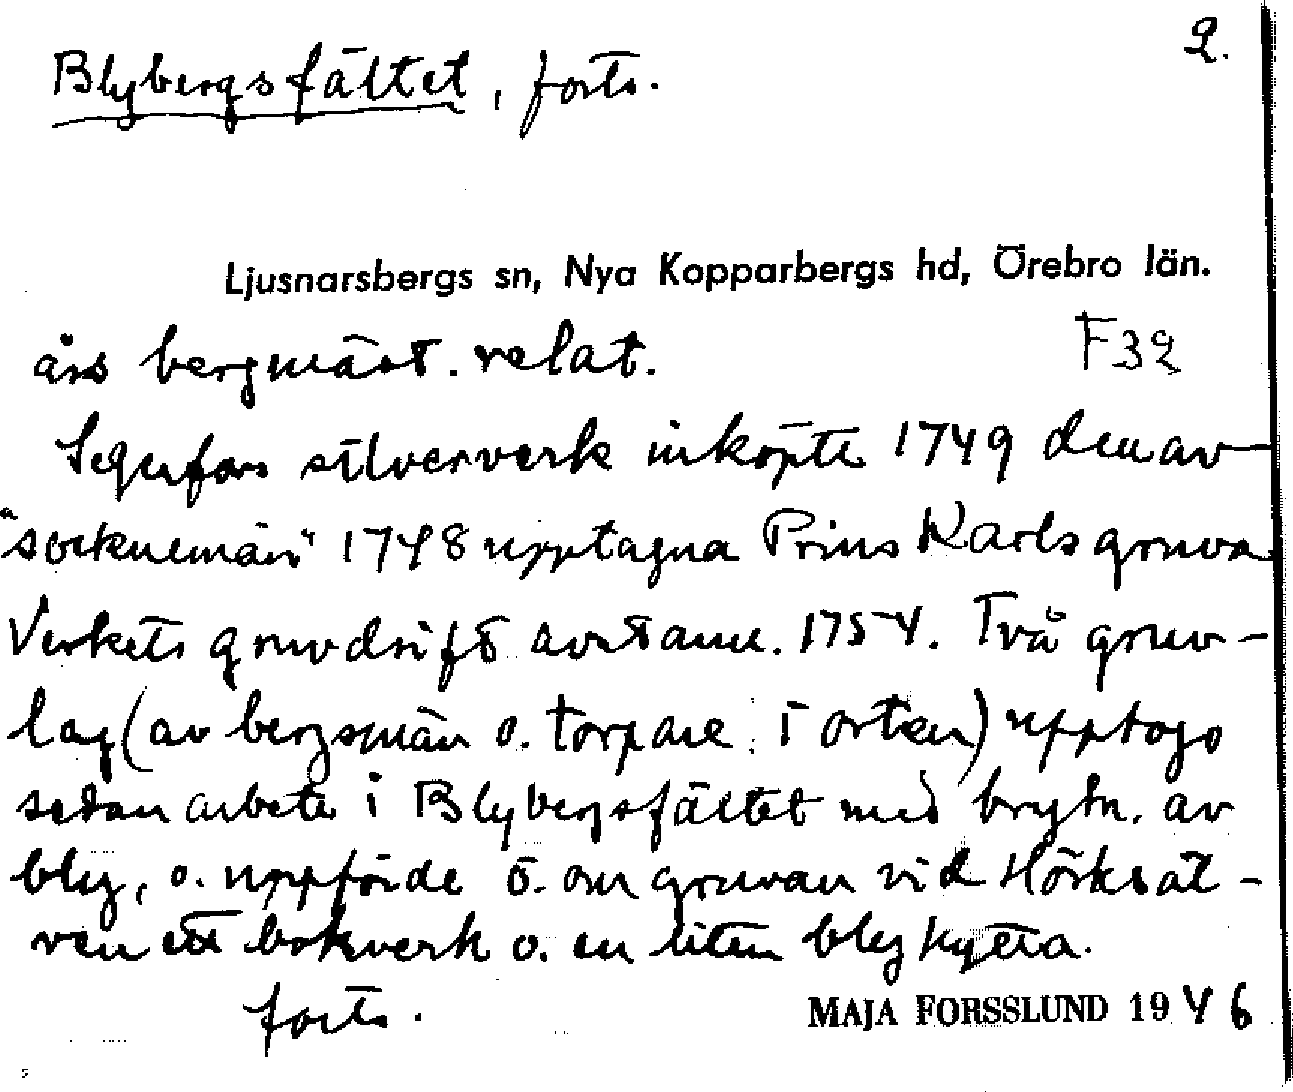 2.
Blybergsfältet, forts.
Ljusnarsbergs sn, Nya Kopparbergs hd, Örebro län.
års bergmäst. relat. F32
Segerfors silververk inköpte 1749 den av
"socknemän" 1748 upptagna Prins Karls gruva
Verkets gruvdrift avstann. 1754. Två gruv-
lag (av bergsmän o. torpare i orten) upptogo
sedan arbete i Blybergsfältet med brytn. av
bly, o. uppförde ö. om gruvan vid Hörksäl-
ven ett bokverk o. en liten blyhytta.
forts.
MAJA FORSSLUND 1946